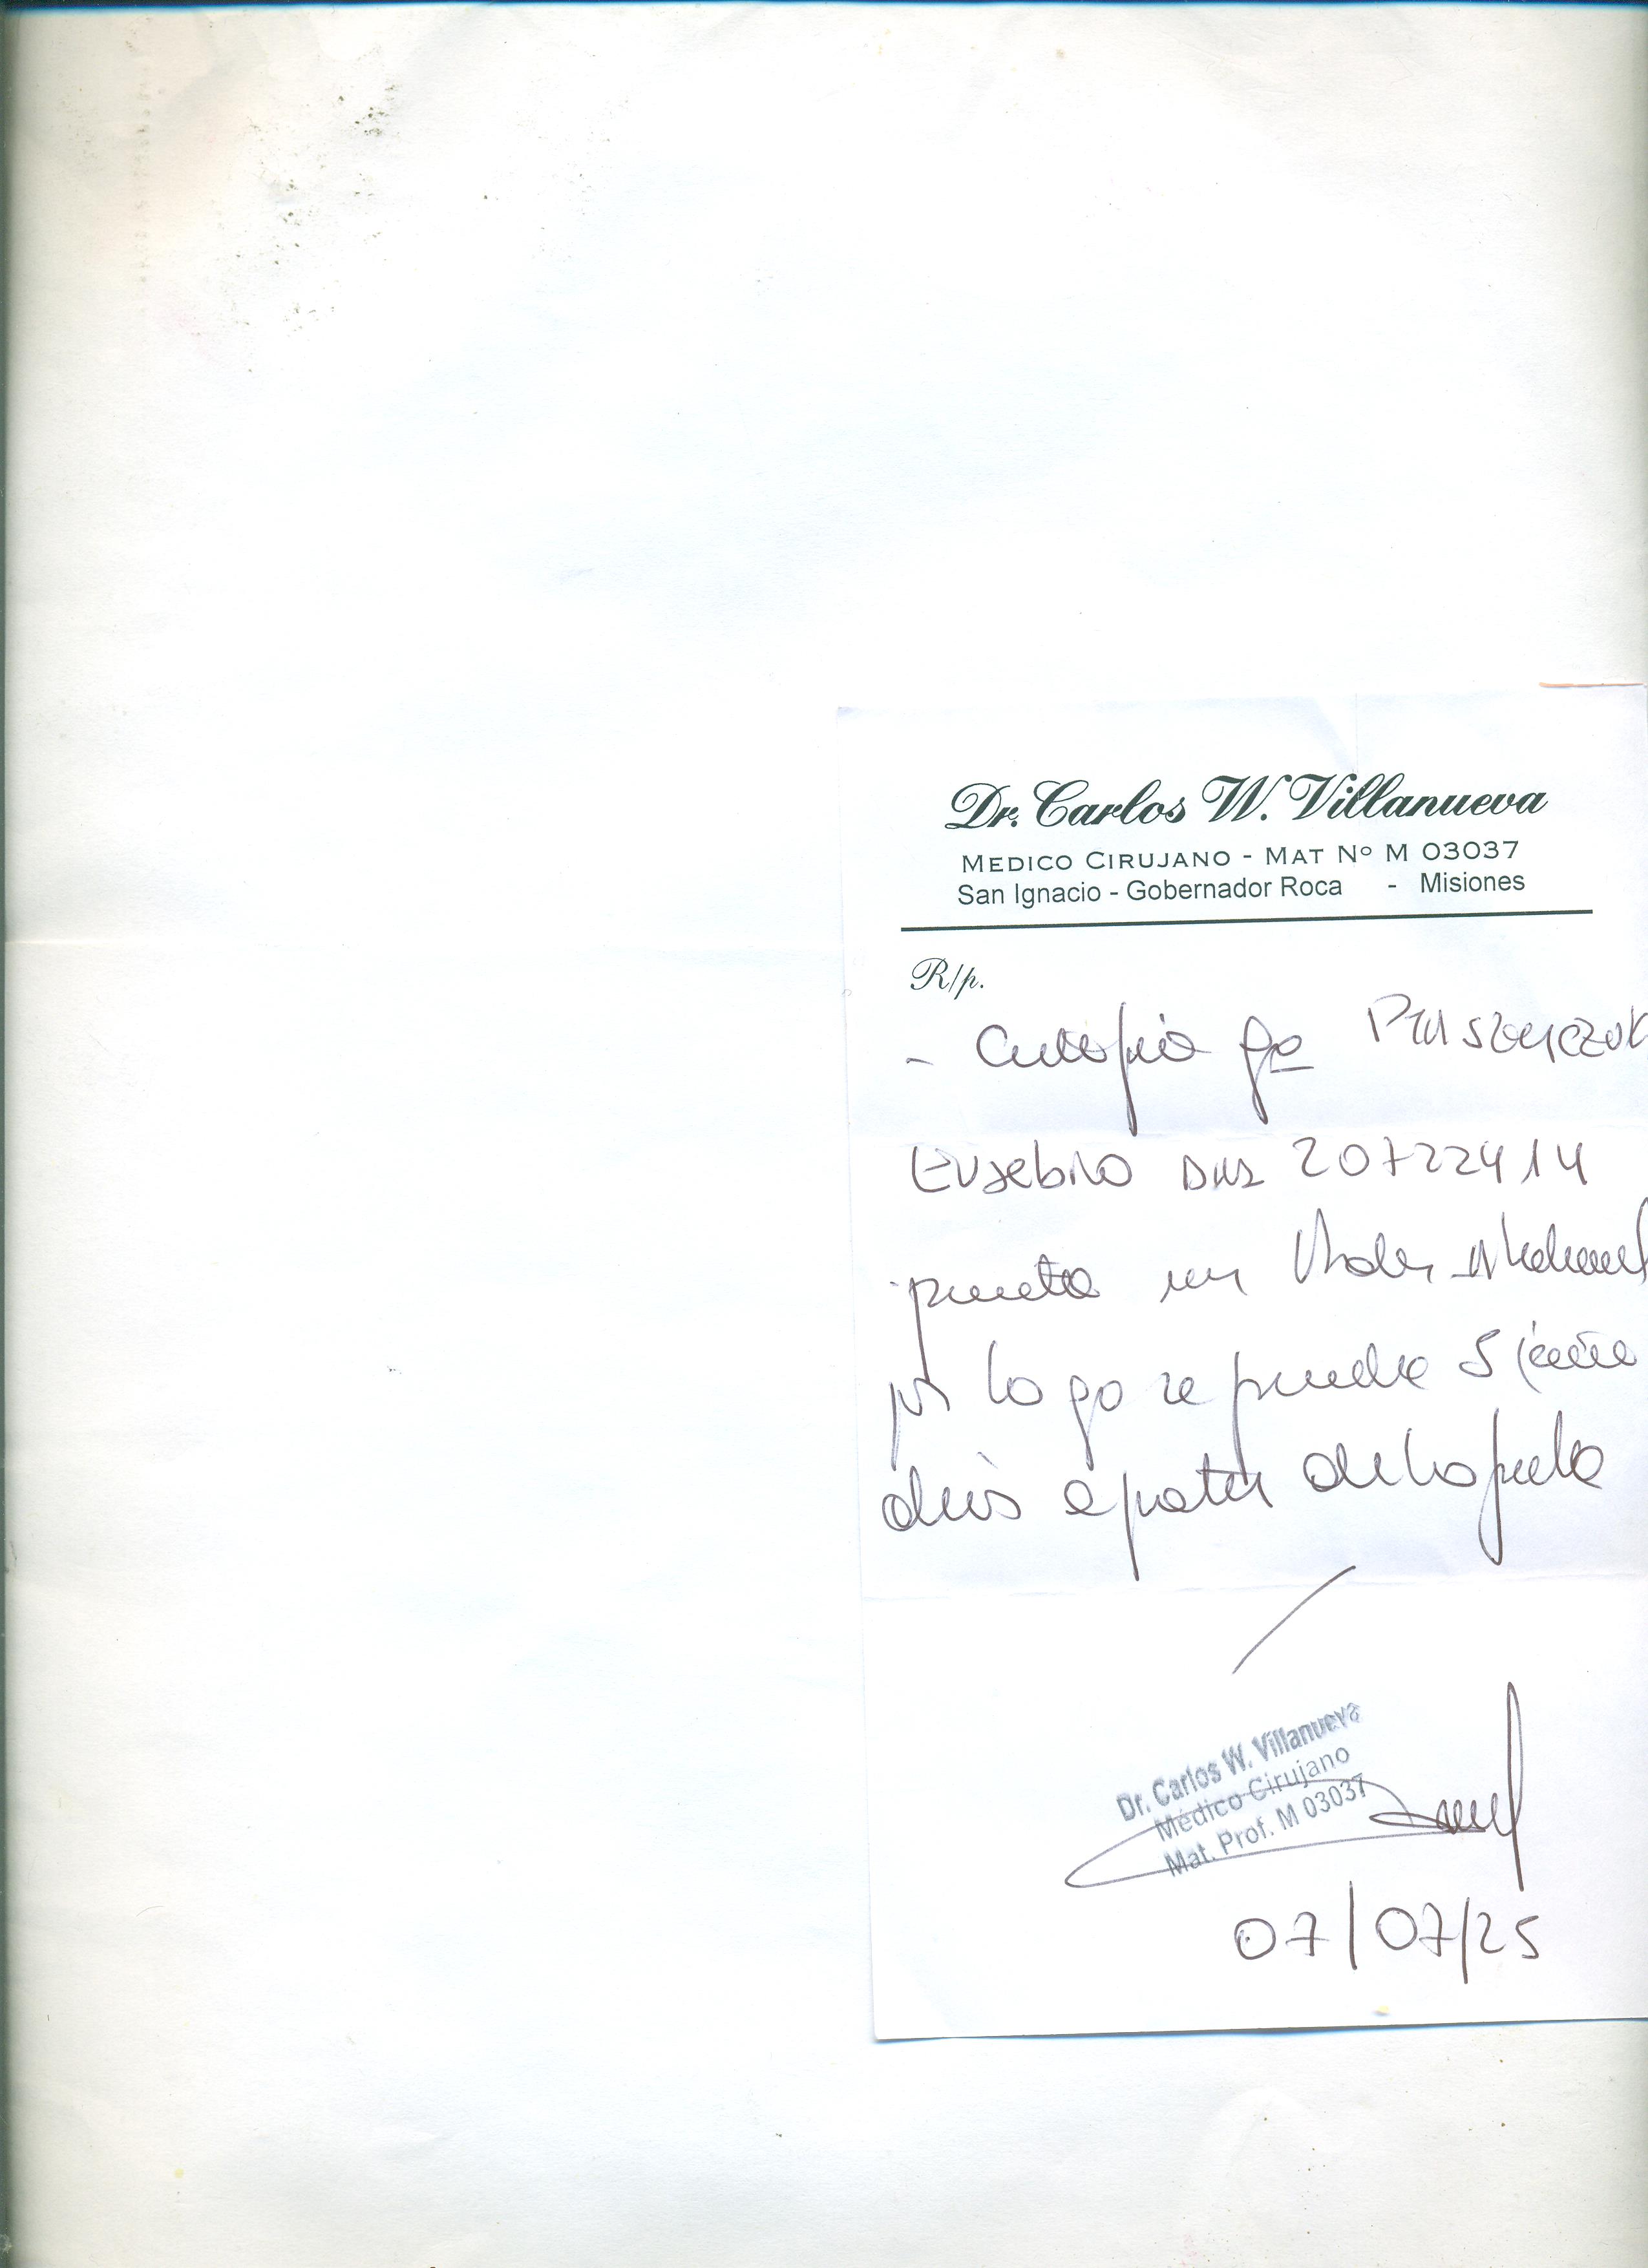 Dr. Carlos W. Villanueva
MEDICO CIRUJANO - MAT Nº M 03037
San Ignacio - Gobernador Roca - Misiones
R/p.
- Certifico qe
Eusebio DNI 20722414
presenta un
por lo qe se prescribe 5 (cinco
días a partir de la fecha
Dr. Carlos W. Villanueva
Médico Cirujano
Mat. Prof. M 03037
07/07/25